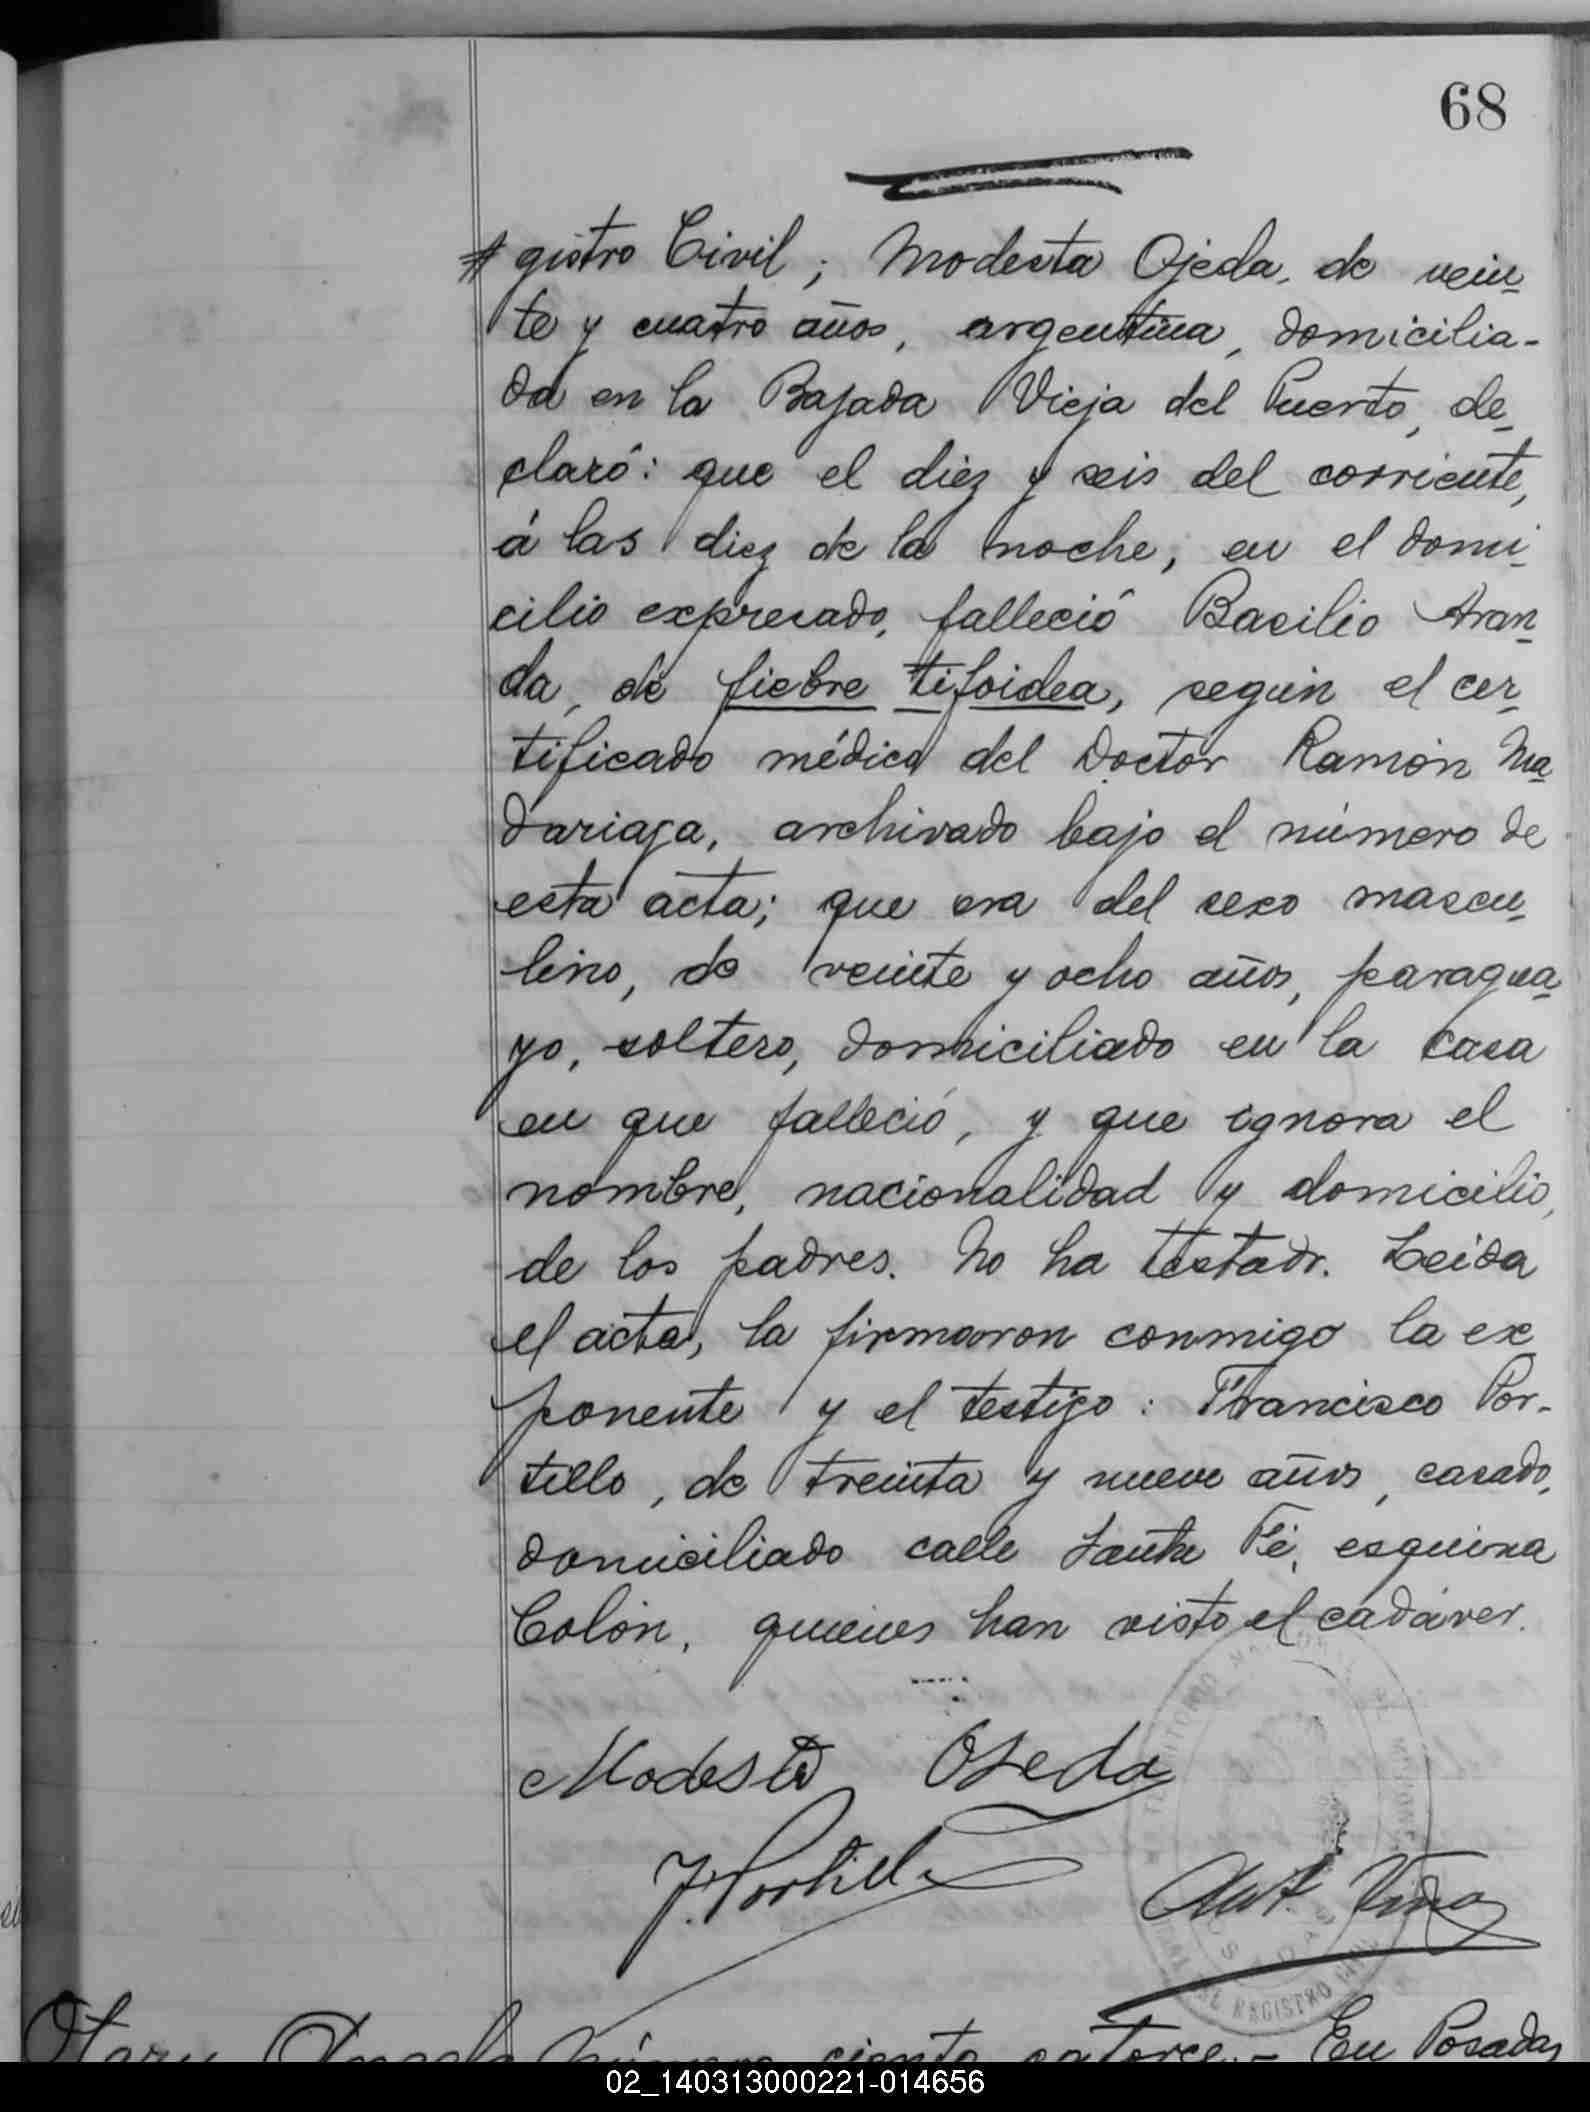 68
gistro Civil; Modesta Ojeda, de vein-
te y cuatro años, argentina, domicilia-
da en la Bajada Vieja del Puerto, de-
claró: que el diez y seis del corriente,
á las diez de la noche, en el domi-
cilio expresado, falleció Basilio Aran-
da, de fiebre tifoidea, según el cer-
tificado médico del Doctor Ramón Ma-
dariaga, archivado bajo el número de
esta acta; que era del sexo mascu-
lino, de veinte y ocho años, paragua-
yo, soltero, domiciliado en la casa
en que falleció, y que ignora el
nombre, nacionalidad y domicilio,
de los padres. No ha testado. Leida
el acta, la firmaron conmigo la ex-
ponente y el testigo: Francisco Por-
tillo, de treinta y nueve años, casado,
domiciliado calle Santa Fé, esquina
Colón, quienes han visto el cadáver.
Modesta Ojeda
F. Portillo
número ciento catorce.- En Posadas
02_140313000221-014656